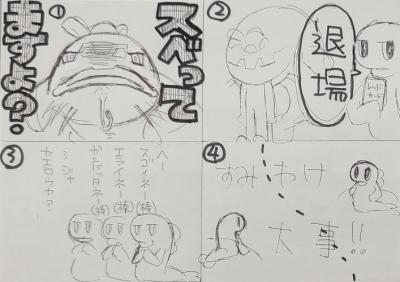 ①
スベって
ますよ?.
②
退場
レッド
カード
③
へー
スゴイネー(棒)
エライネー(棒)
ガンバッタネー(棒)
ミンナ
カエロウカ?
④
すみわけ
大事!!